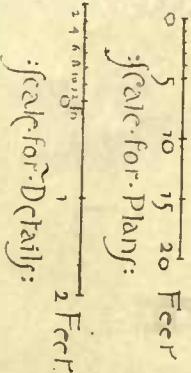 0 5 10 15 20 Feet
:Scale·for·Plans:
2 4 6 8 10 12 1 2 Feet
:Scale·for·Details: